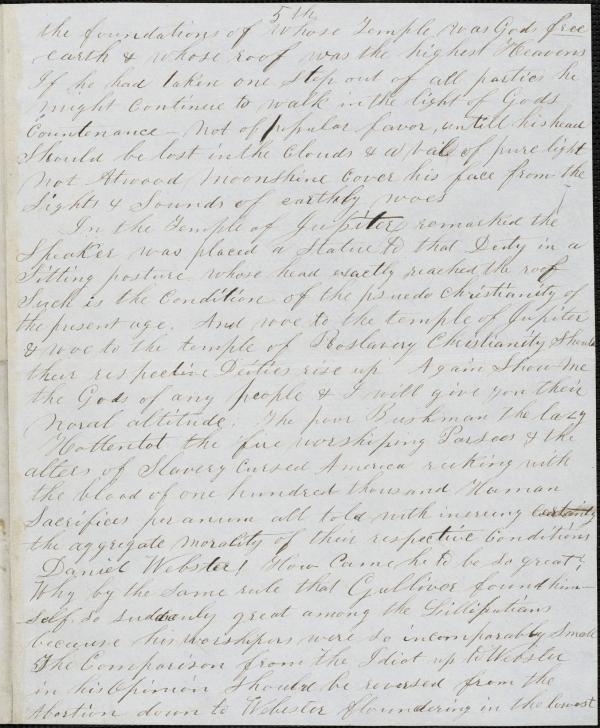 5th
the foundations of whose Temple was Gods free
earth & whose roof was the highest Heavens
If he had taken one Step out of all parties he
might Continue to walk in the light of Gods
Countenance - Not of popular favor, untill his head
Should be lost in the Clouds & a vail of pure light
not Atwood Moonshine Cover his face from the
Sights & Sounds of earthly woes
In the Temple of Jupiter remarked the
Speaker was placed a Statue to that Deity in a
Sitting posture whose head exactly reached the roof
Such is the Condition of the pseudo Christianity of
the present age. And woe to the temple of Jupiter
& woe to the temple of Proslavery Christianity Should
their respective Deities rise up Again Show me
the Gods of any people & I will give you their
moral altitude. The poor Bushman the lazy
Hottentot the fire worshiping Parsees & the
alters of Slavery Cursed America reeking with
the blood of one hundred thousand Human
Sacrifices per anum all told with unering certainty
the aggregate morality of their respective Conditions
Daniel Webster! How Came he to be so great?
Why by the same rule that Gulliver found him-
self so suddenly great among the Lillipatians
because his worshipers were so incomparably Small
The Comparison from the Idiot up to Webster
in his Opinion Should be reversed from the
Abortion down to Webster floundering in the lowest